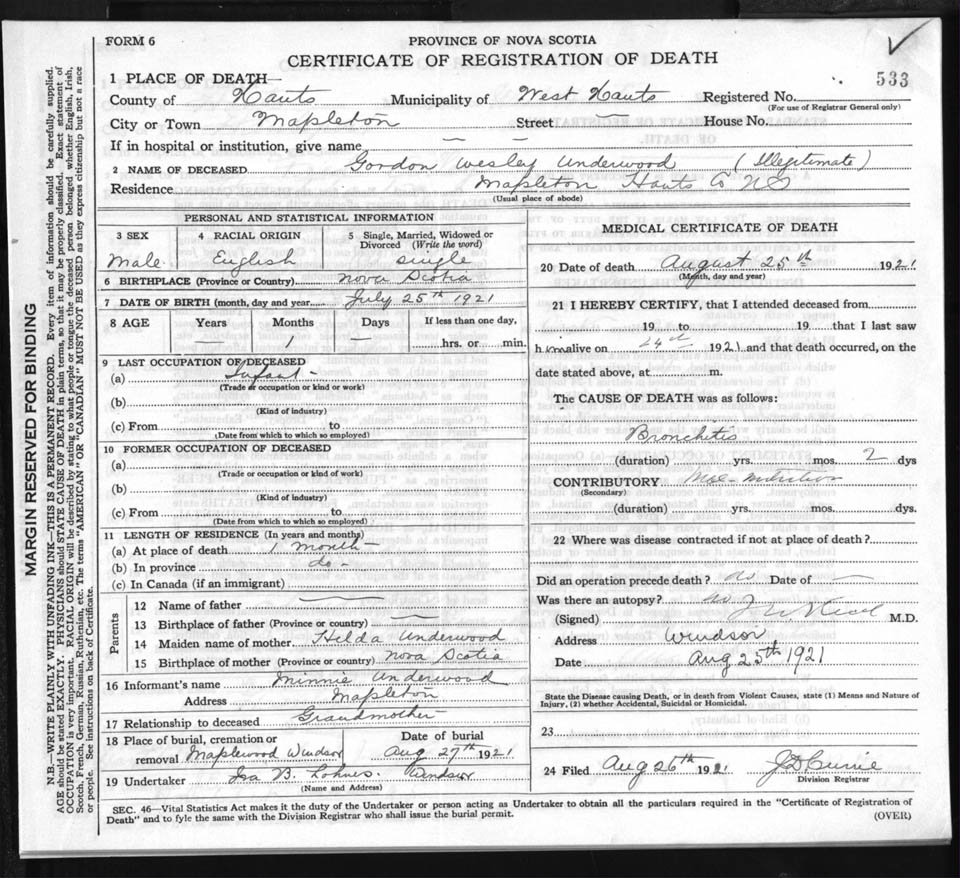 FORM 6
PROVINCE OF NOVA SCOTIA
CERTIFICATE OF REGISTRATION OF DEATH
533
1 PLACE OF DEATH—
County of Hants Municipality of West Hants Registered No.
(For use of Registrar General only)
City or Town Mapleton Street — House No.
If in hospital or institution, give name — —
2 NAME OF DECEASED Gordon Wesley Underwood (Illegitimate)
Residence Mapleton Hants Co NS
(Usual place of abode)
PERSONAL AND STATISTICAL INFORMATION
3 SEX
Male
4 RACIAL ORIGIN
English
5 Single, Married, Widowed or Divorced (Write the word)
single
6 BIRTHPLACE (Province or Country) Nova Scotia
7 DATE OF BIRTH (month, day and year) July 25th 1921
8 AGE Years Months Days If less than one day,
— 1 — hrs. or min.
9 LAST OCCUPATION OF DECEASED
(a) Infant -
(Trade or occupation or kind or work)
(b)
(Kind of industry)
(c) From to
(Date from which to which so employed)
10 FORMER OCCUPATION OF DECEASED
(a)
(Trade or occupation or kind of work)
(b)
(Kind of industry)
(c) From to
(Date from which to which so employed)
11 LENGTH OF RESIDENCE (In years and months)
(a) At place of death 1 month -
(b) In province do -
(c) In Canada (if an immigrant)
Parents
12 Name of father —
13 Birthplace of father (Province or country) —
14 Maiden name of mother Hilda Underwood
15 Birthplace of mother (Province or country) Nova Scotia
16 Informant's name Minnie Underwood
Address Mapleton
17 Relationship to deceased Grandmother
18 Place of burial, cremation or removal Maplewood Windsor
Date of burial
Aug 27th 1921
19 Undertaker Ira B. Lohnes. Windsor
(Name and Address)
MEDICAL CERTIFICATE OF DEATH
20 Date of death August 25th 1921
(Month, day and year)
21 I HEREBY CERTIFY, that I attended deceased from
19 to 19 that I last saw
him alive on 24th 1921 and that death occurred, on the
date stated above, at m.
The CAUSE OF DEATH was as follows:
Bronchitis
(duration) yrs. mos. 2 dys
CONTRIBUTORY Mal-nutrition
(Secondary)
(duration) yrs. mos. dys.
22 Where was disease contracted if not at place of death?
Did an operation precede death? no Date of —
Was there an autopsy? no
(Signed) M.D.
Address Windsor,
Date Aug 25th 1921
State the Disease causing Death, or in death from Violent Causes, state (1) Means and Nature of
Injury, (2) whether Accidental, Suicidal or Homicidal.
23
24 Filed Aug 26th 1921 J D Currie
Division Registrar
SEC. 46—Vital Statistics Act makes it the duty of the Undertaker or person acting as Undertaker to obtain all the particulars required in the "Certificate of Registration of
Death" and to fyle the same with the Division Registrar who shall issue the burial permit.
(OVER)
MARGIN RESERVED FOR BINDING
N.B.—WRITE PLAINLY WITH UNFADING INK—THIS IS A PERMANENT RECORD. Every item of information should be carefully supplied.
AGE should be stated EXACTLY. PHYSICIANS should STATE CAUSE OF DEATH in plain terms, so that it may be properly classified. Exact statement of
OCCUPATION is very important. RACIAL ORIGIN will be described by stating to what people or tongue the deceased person belonged whether English, Irish,
Scotch, French, German, Russian, Ruthenian, etc. The terms "AMERICAN" OR "CANADIAN" MUST NOT BE USED as they express citizenship but not a race
or people. See instructions on back of Certificate.